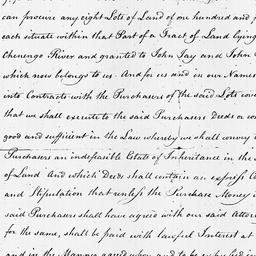 can procure any eight Lots of Land of one hundred and
each situate within that Part of a Tract of Land lying
Chenengo River and granted to John Jay and John
which now belongs to us. And for us and in our Names
into Contracts with the Purchasers of the said Lots
that we shall execute to the said Purchasers Deeds or
good and sufficient in the Law whereby we shall convey
Purchasers an indefeasible Estate of Inheritance in the
of Land And which Deeds shall contain an express
and Stipulation that unless the Purchase Money
said Purchasers shall have agreed with our said
for the same, shall be paid with lawful Interest at
and in the Manner agreed upon and to be